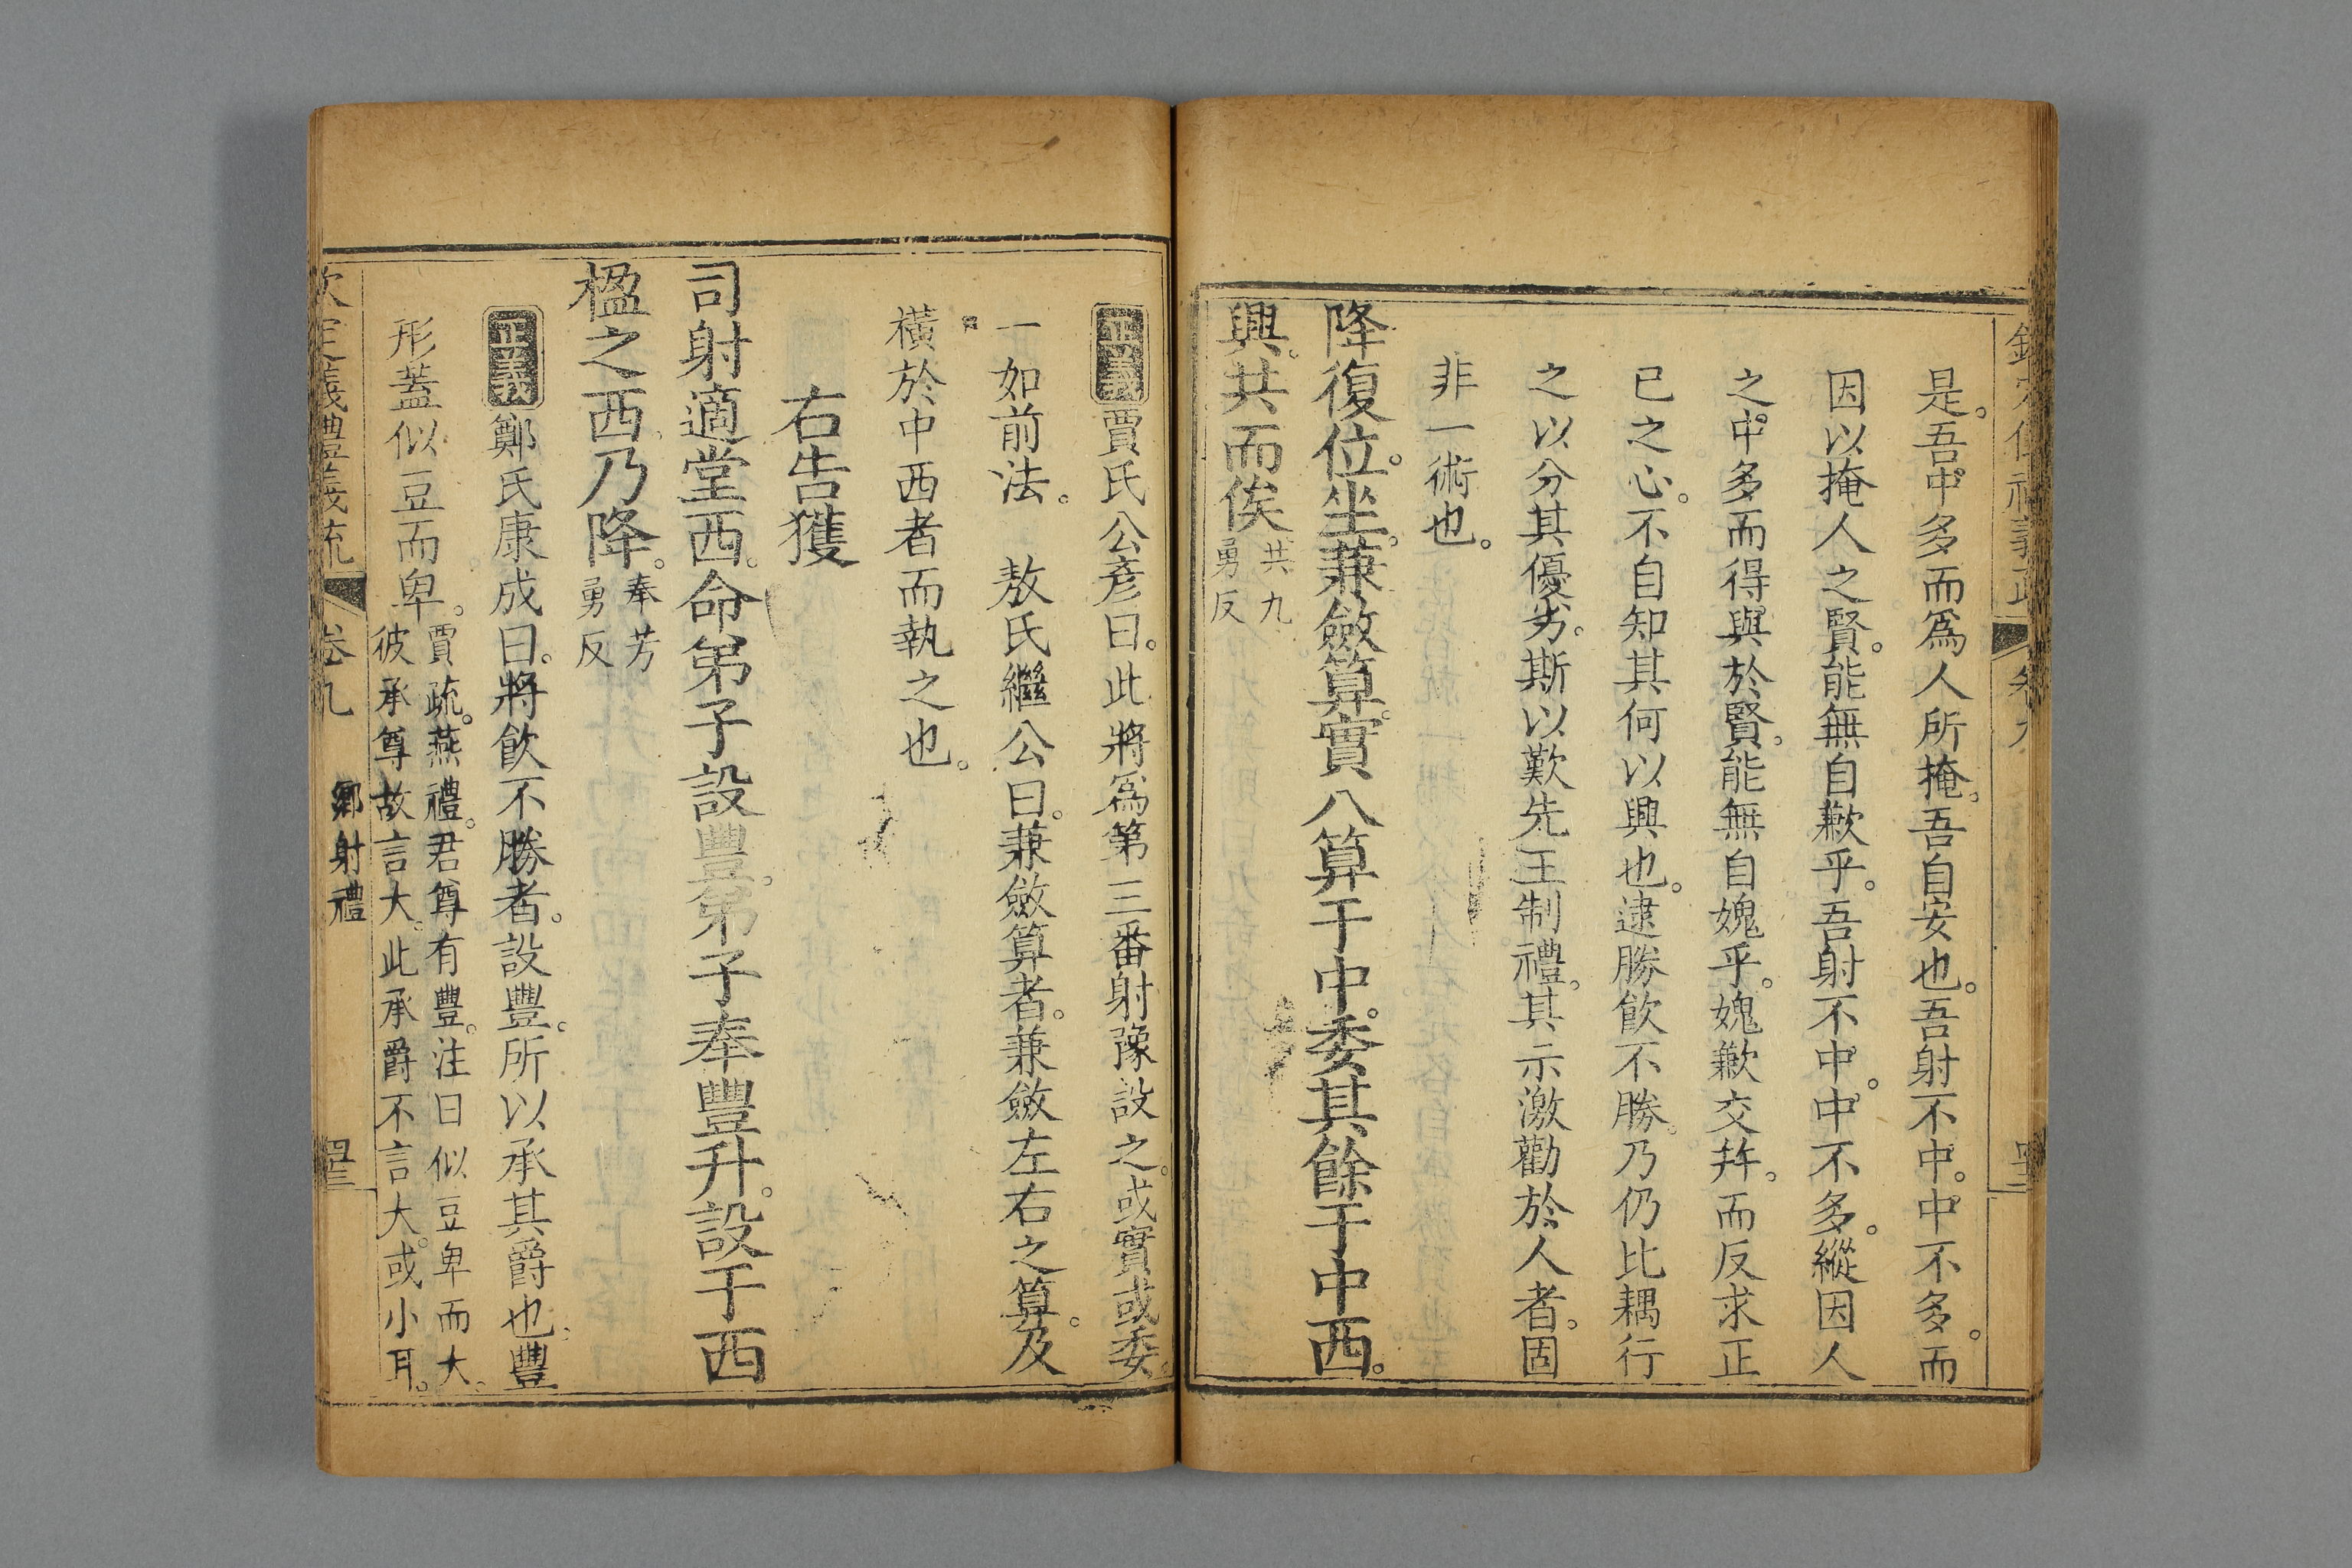 是。吾中多而爲人所掩。吾自安也。吾射不中。中不多。而
因以掩人之賢。能無自歉乎。吾射不中。中不多。縱因人
之中多而得與於賢。能無自媿乎。媿歉交幷。而反求正
已之心。不自知其何以興也。逮勝飲不勝。乃仍比耦行
之以分其優劣。斯以歎先王制禮。其示激勸於人者。固
非一術也。
降復位。坐。兼斂算。實八算于中。委其餘于中西。
興。共而俟共九勇反
正義賈氏公彥曰。此將爲第三番射豫設之。或實或委。
一如前法。 敖氏繼公曰。兼斂算者。兼斂左右之算。及
橫於中西者而執之也。
右告獲
司射適堂西。命弟子設豐。弟子奉豐升。設于西
楹之西。乃降。奉芳勇反
正義鄭氏康成曰。將飲不勝者。設豐。所以承其爵也。豐
形蓋似豆而卑。賈疏。燕禮。君尊有豐。注曰似豆卑而大。
彼承尊故言大。此承爵不言大。或小耳。
義禮義疏 卷九 鄉射禮